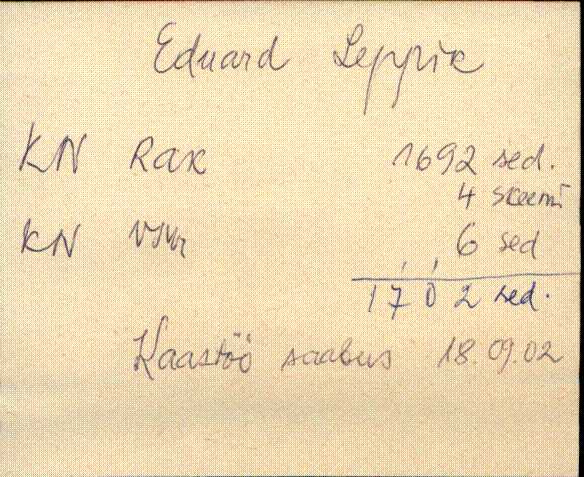 Eduard Leppik
KN RAK 1692 sed.
4 skeemi
KN VMr 6 sed
1702 sed.
Kaastöö saabus 18.09.02